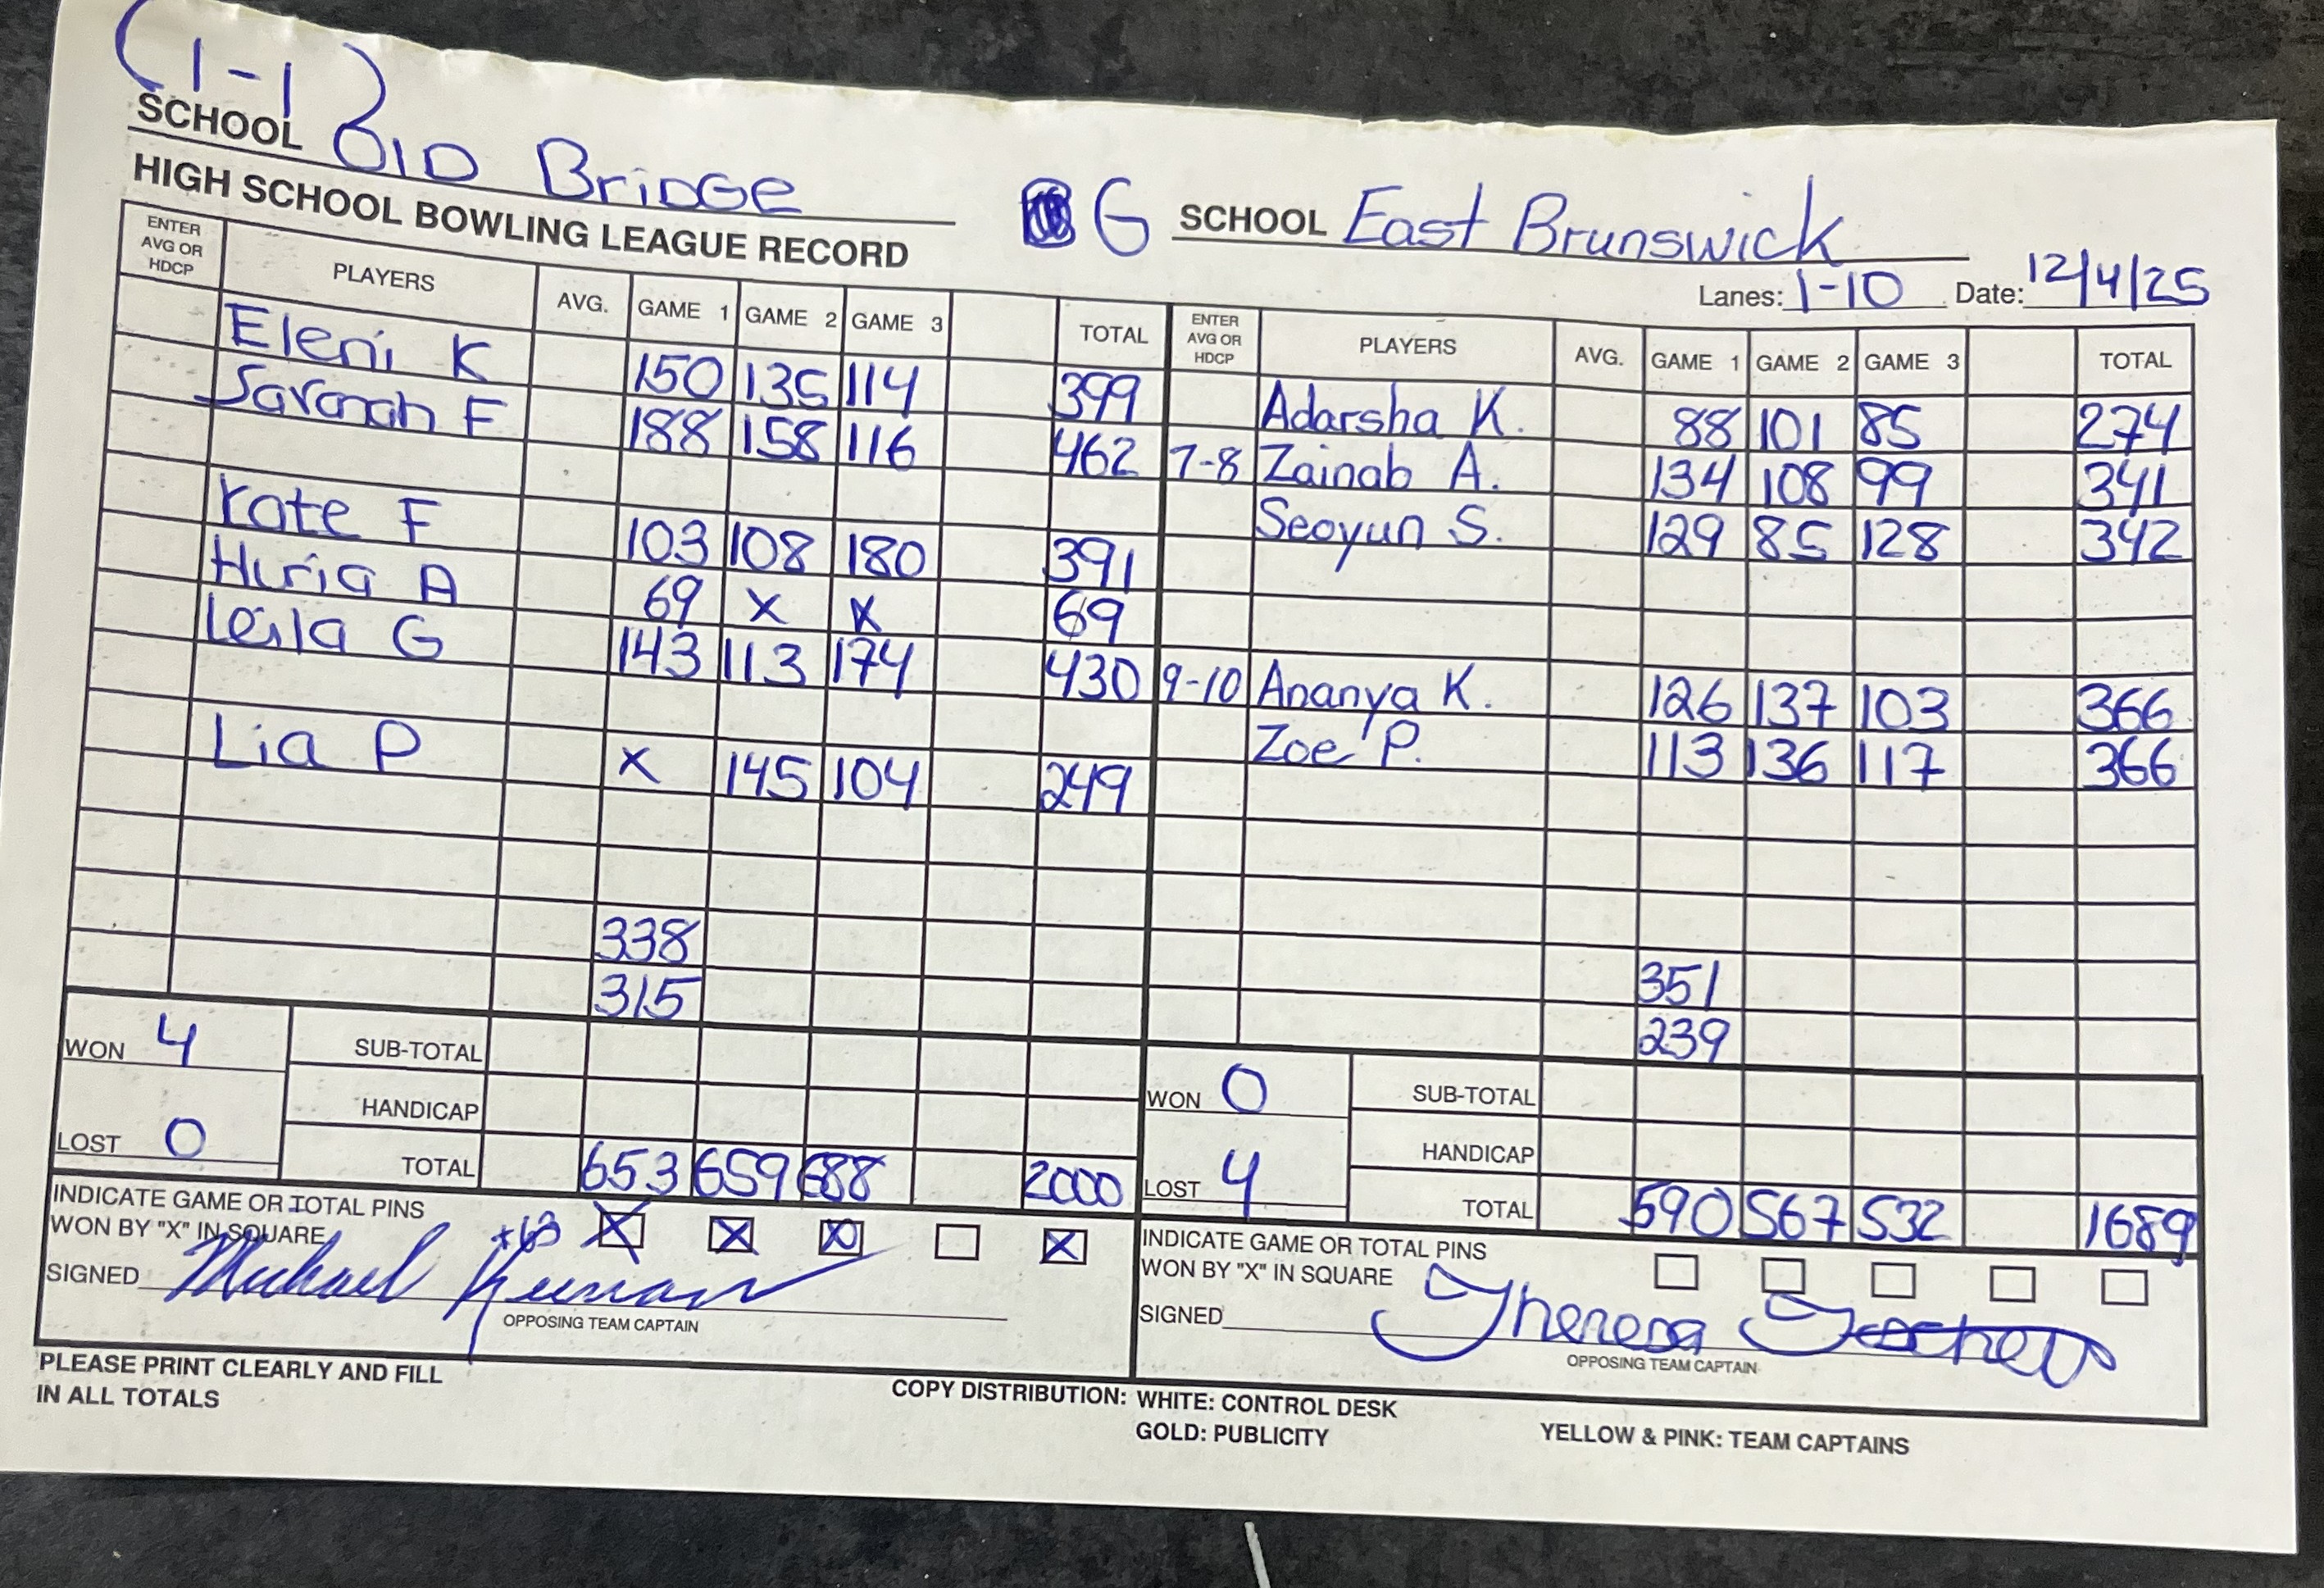 (1-1)
SCHOOL OlD BriDGe G SCHOOL East Brunswick
HIGH SCHOOL BOWLING LEAGUE RECORD Lanes: 1-10 Date: 12/4/25
ENTER AVG OR HDCP PLAYERS AVG. GAME 1 GAME 2 GAME 3 TOTAL ENTER AVG OR HDCP PLAYERS AVG. GAME 1 GAME 2 GAME 3 TOTAL
Eleni K 150 135 114 399 Adarsha K. 88 101 85 274
Savanah F 188 158 116 462 7-8 Zainab A. 134 108 99 341
Seoyun S. 129 85 128 342
Kate F 103 108 180 391
Huria A 69 X X 69
Leila G 143 113 174 430 9-10 Ananya K. 126 137 103 366
Zoe P. 113 136 117 366
Lia P X 145 104 249
338 351
315 239
WON 4 SUB-TOTAL WON 0 SUB-TOTAL
HANDICAP HANDICAP
LOST 0 TOTAL 653 659 688 2000 LOST 4 TOTAL 590 567 532 1689
INDICATE GAME OR TOTAL PINS INDICATE GAME OR TOTAL PINS
WON BY "X" IN SQUARE +63 X X X X WON BY "X" IN SQUARE
SIGNED Michael SIGNED Theresa
OPPOSING TEAM CAPTAIN OPPOSING TEAM CAPTAIN
PLEASE PRINT CLEARLY AND FILL
IN ALL TOTALS
COPY DISTRIBUTION: WHITE: CONTROL DESK
GOLD: PUBLICITY YELLOW & PINK: TEAM CAPTAINS